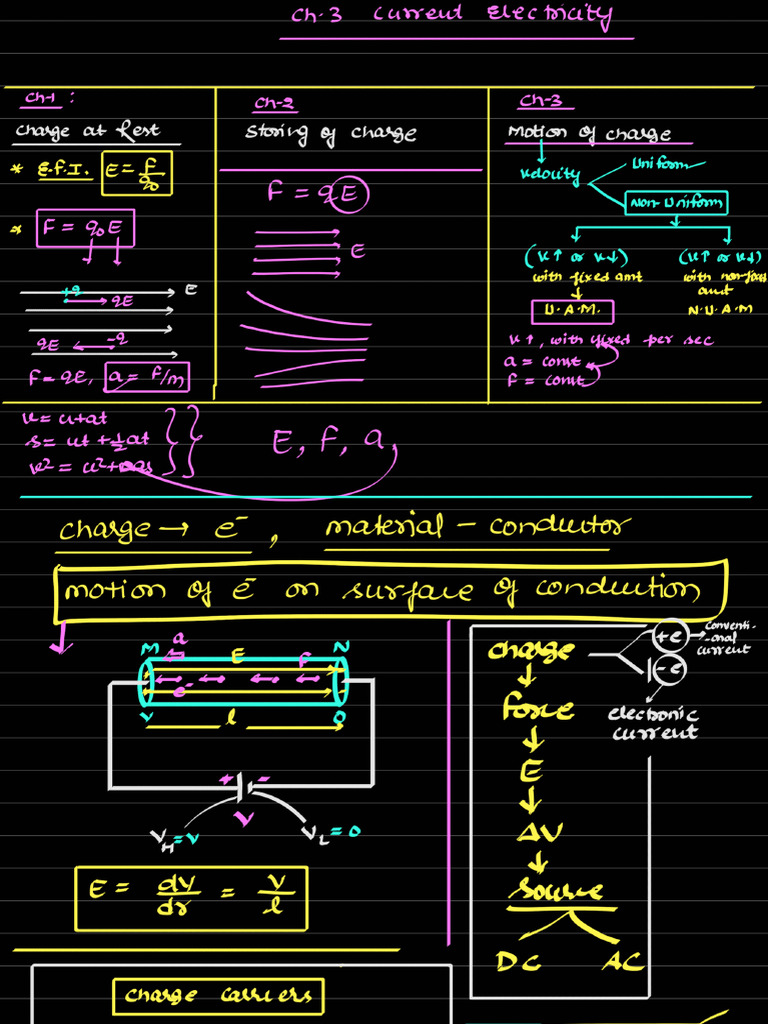 Ch-3 Current Electricity
Ch-1 :
Charge at Rest
* E.F.I. E = F/q₀
* F = q₀E
+q
E
qE
qE ← -q
F = qE, a = F/m
Ch-2
Storing of charge
F = qE
E
Ch-3
Motion of charge
Velocity
Uniform
Non-Uniform
(v↑ or v↓)
with fixed amt
U.A.M.
(v↑ or v↓)
with non-fixed
amt
N.U.A.M
v↑, with fixed per sec
a = const
F = const
v = u+at
s = ut + ½at
v² = u²+2as
E, F, a,
charge → e⁻, material - conductor
motion of e⁻ on surface of conduction
M a E F N
e⁻
V l O
+ -
V
V_H = V V_L = 0
E = dV/dr = V/l
charge
+e → conventi-
-onal
current
-e
electronic
current
Force
E
ΔV
Source
DC AC
Charge Carriers